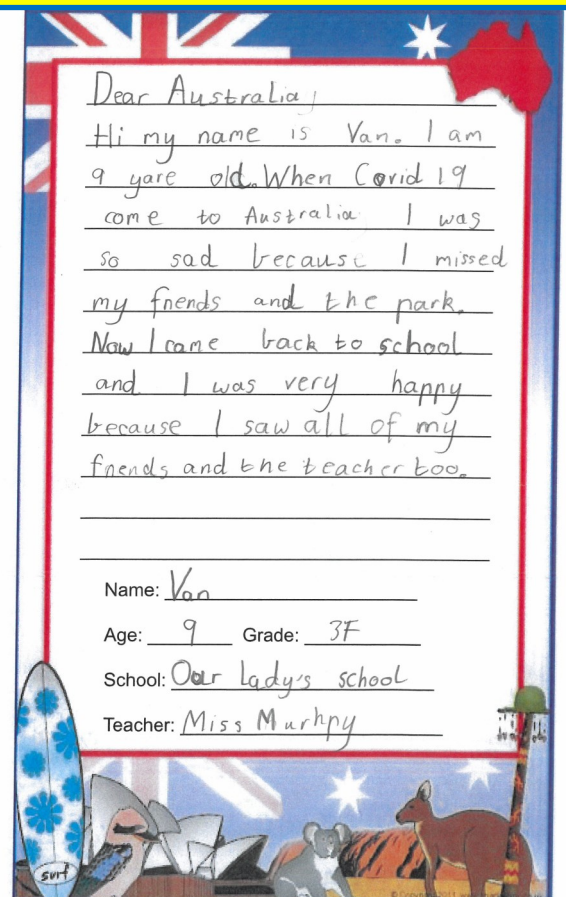 Dear Australia,
Hi my name is Van. I am
9 yare old. When Covid 19
come to Australia I was
so sad because I missed
my friends and the park.
Now I came back to school
and I was very happy
because I saw all of my
friends and the teacher too.
Name: Van
Age: 9 Grade: 3F
School: Our Lady's school
Teacher: Miss Murhpy
surf